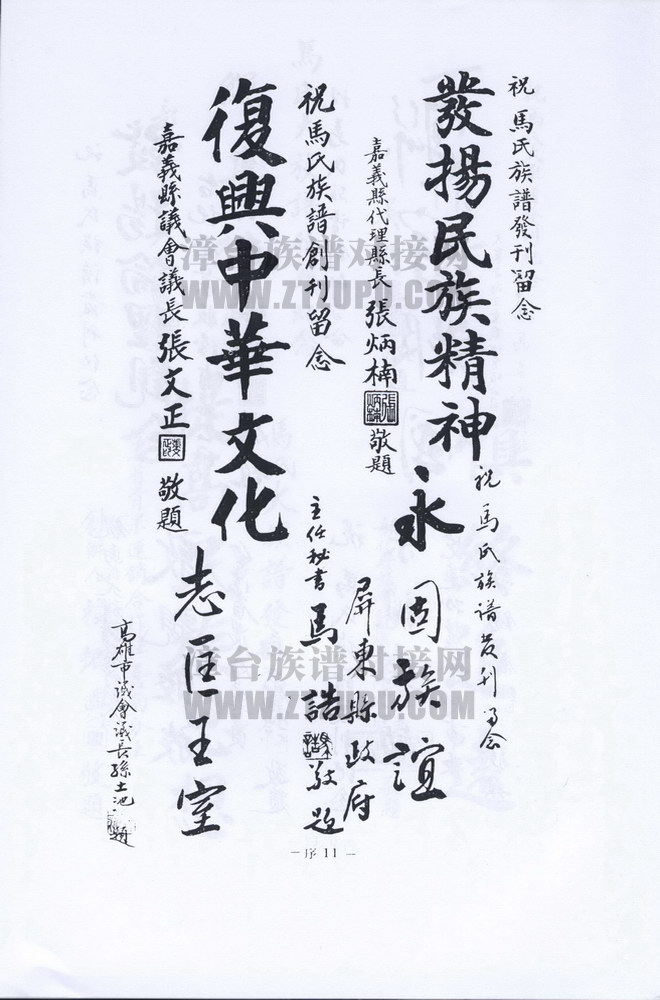 祝 馬氏族譜發刊留念
發揚民族精神
嘉義縣代理縣長 張炳楠 敬題
祝馬氏族譜創刊留念
復興中華文化
嘉義縣議會議長 張文正 敬題
祝馬氏族譜發刊留念
永固族誼
屏東縣政府
主任秘書 馬誥 敬題
志匡王室
高雄市議會議長孫土池 題
漳台族谱对接网
WWW.ZTZUPU.COM
漳台族谱对接网
WWW.ZTZUPU.COM
－序11－